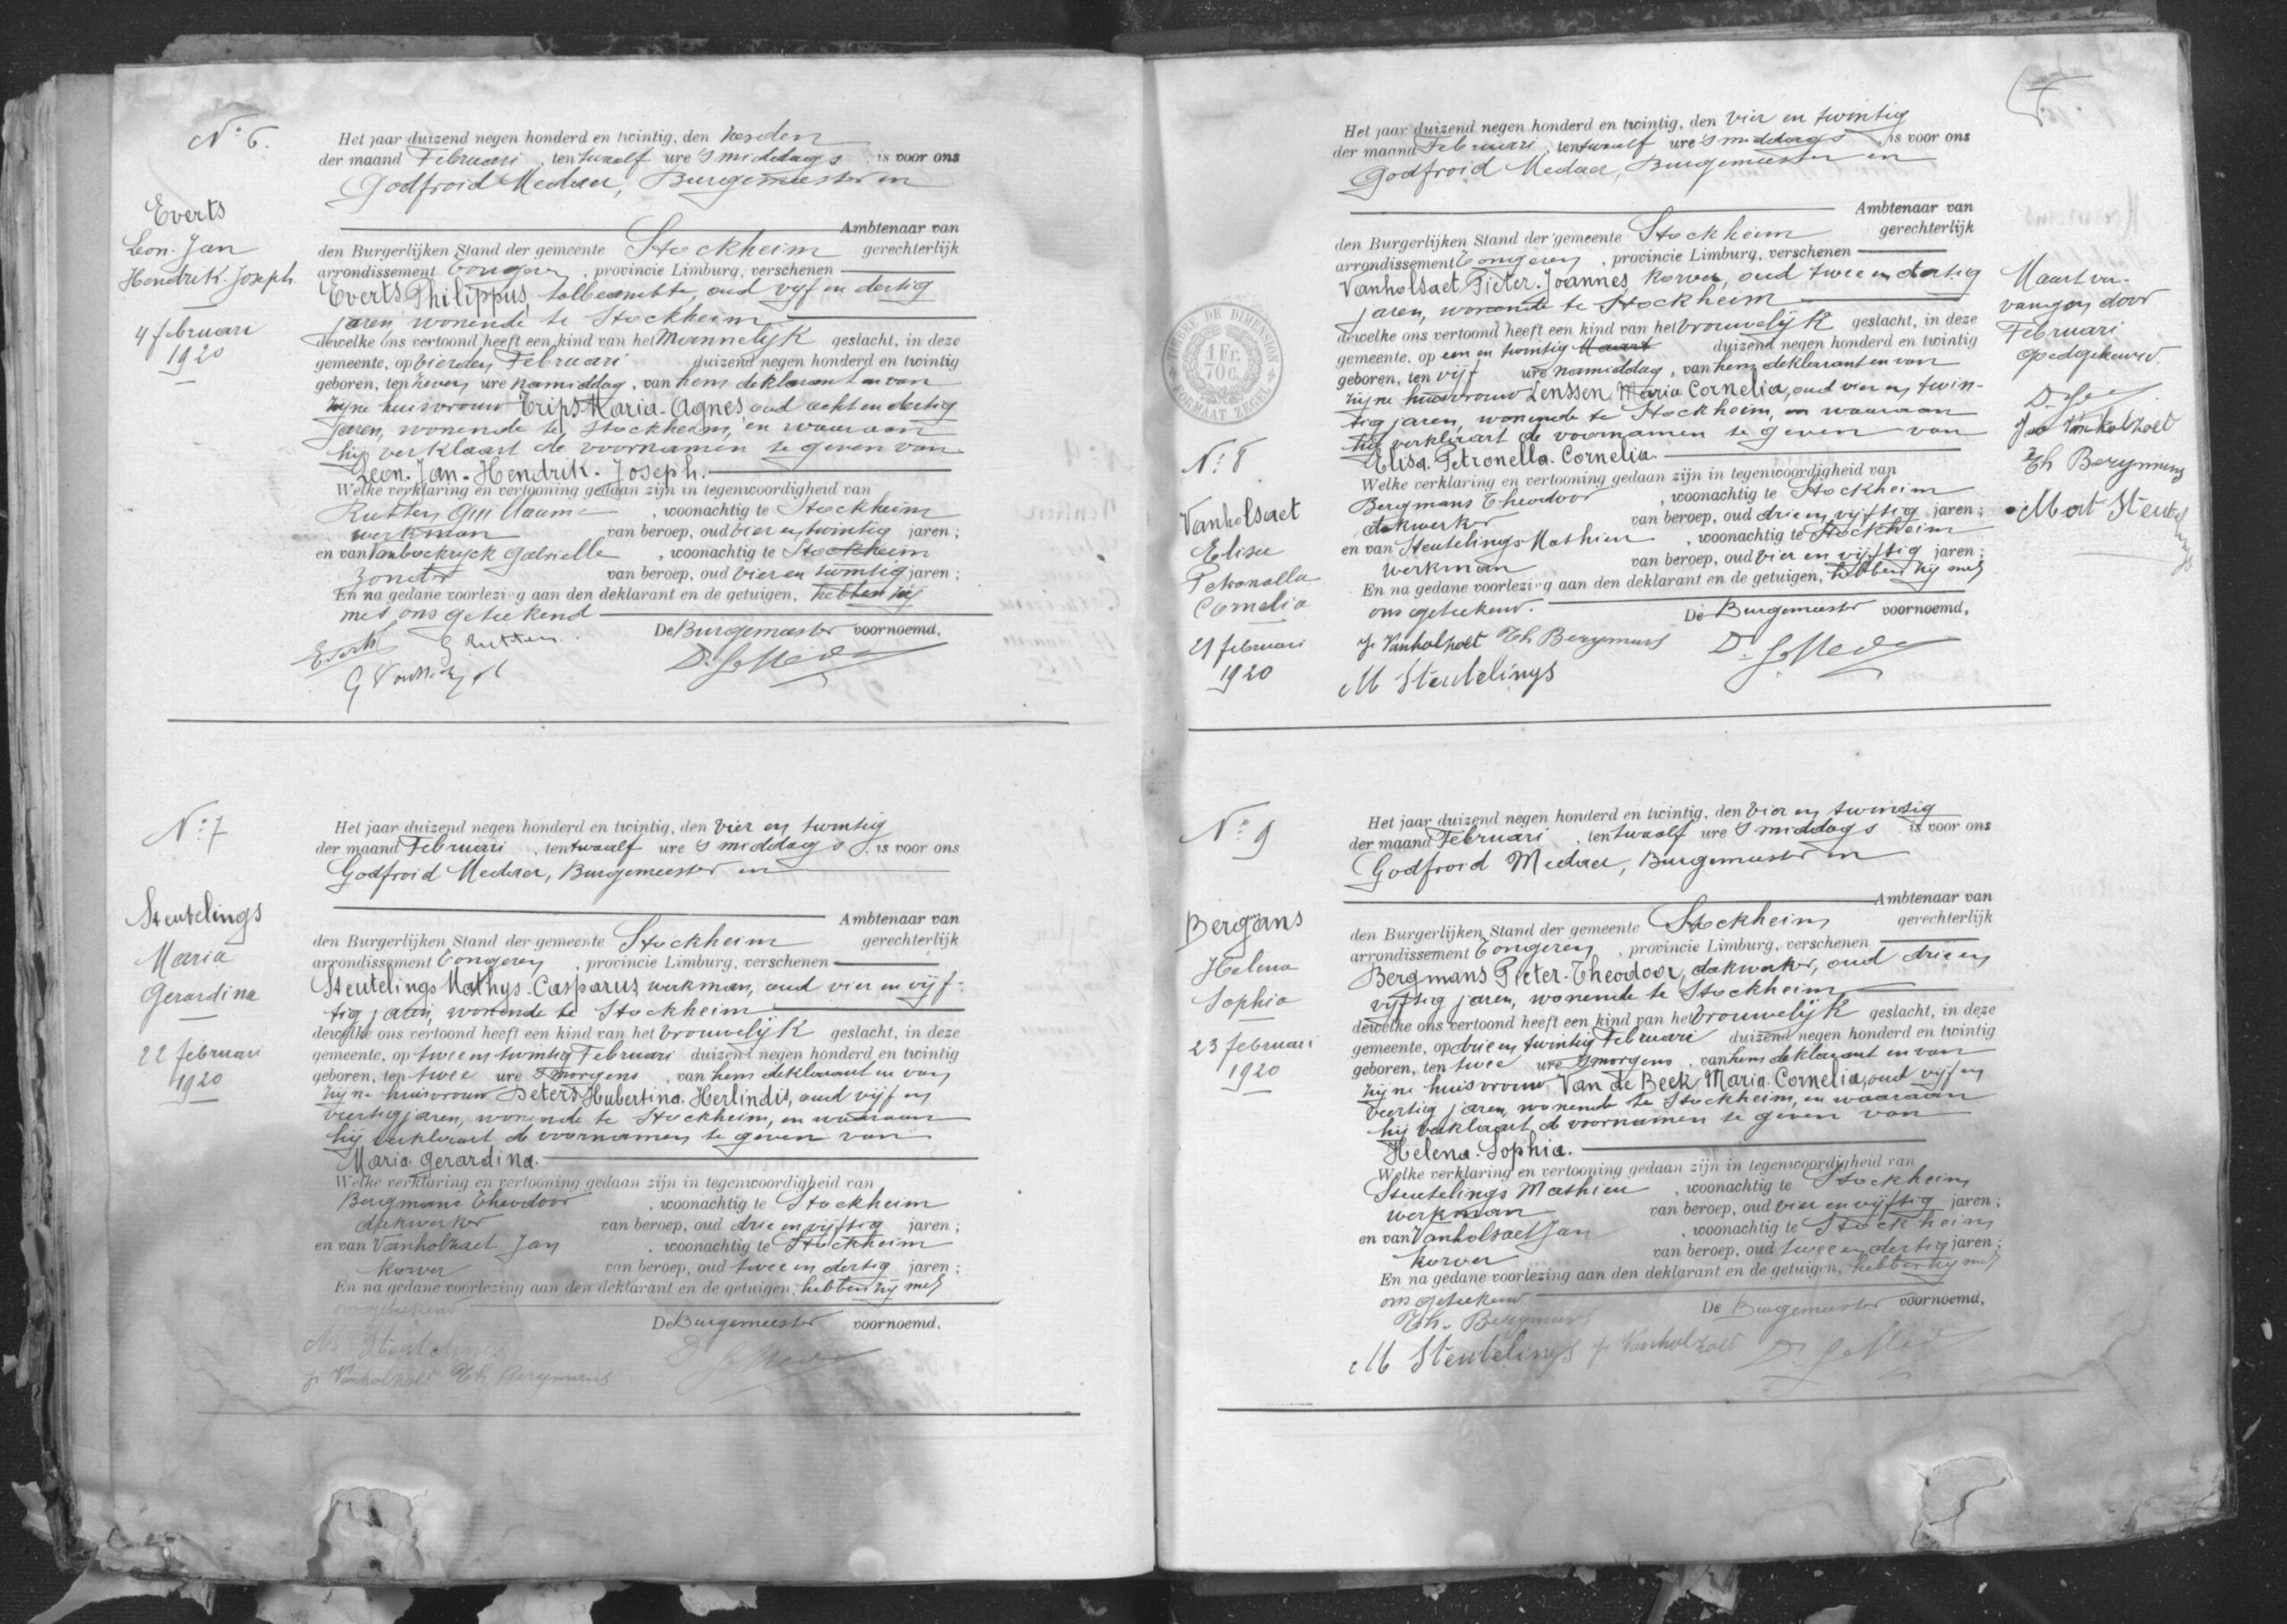 N° 6.
Everts
Leon. Jan
Hendrik. Joseph
4 februari
1920
Het jaar duizend negen honderd en twintig, den zesden
der maand Februari, ten twaalf ure 's middags, is voor ons
Godfroid Medaer, Burgemeester en
Ambtenaar van
den Burgerlijken Stand der gemeente Stockheim gerechterlijk
arrondissement Tongeren, provincie Limburg, verschenen
Everts Philippus, tolbeambte, oud vijf en dertig
jaren, wonende te Stockheim
dewelke ons vertoond heeft een kind van het Mannelijk geslacht, in deze
gemeente, op vierden Februari duizend negen honderd en twintig
geboren, ten zeven ure namiddag, van hem deklarant en van
zijne huisvrouw Trips Maria-Agnes oud acht en dertig
jaren, wonende te Stockheim, en waaraan
hij verklaart de voornamen te geven van
Leon. Jan-Hendrik. Joseph.
Welke verklaring en vertooning gedaan zijn in tegenwoordigheid van
Rutten Guillaume, woonachtig te Stockheim
werkman van beroep, oud vier en twintig jaren;
en van Vanbockryck Gabrielle, woonachtig te Stockheim
zonder van beroep, oud vier en twintig jaren;
En na gedane voorlezing aan den deklarant en de getuigen, hebben zij
met ons geteekend
De Burgemeester voornoemd,
Everts G. Rutten.
D. G. Meda
N° 7
Steutelings
Maria
Gerardina
22 februari
1920
Het jaar duizend negen honderd en twintig, den vier en twintig
der maand Februari, ten twaalf ure 's middags, is voor ons
Godfroid Medaer, Burgemeester en
Ambtenaar van
den Burgerlijken Stand der gemeente Stockheim gerechterlijk
arrondissement Tongeren, provincie Limburg, verschenen
Steutelings Mathys-Casparus, werkman, oud vier en vijf-
tig jaren, wonende te Stockheim
dewelke ons vertoond heeft een kind van het vrouwelijk geslacht, in deze
gemeente, op twee en twintig Februari duizend negen honderd en twintig
geboren, ten twee ure 's morgens, van hem deklarant en van
zijne huisvrouw Peters Hubertina. Herlindis, oud vijf en
veertig jaren, wonende te Stockheim, en waaraan
hij verklaart de voornamen te geven van
Maria Gerardina.
Welke verklaring en vertooning gedaan zijn in tegenwoordigheid van
Bergmans Theodoor, woonachtig te Stockheim
dakwerker van beroep, oud drie en vijftig jaren;
en van Vanholsaet Jan, woonachtig te Stockheim
korver van beroep, oud twee en dertig jaren;
En na gedane voorlezing aan den deklarant en de getuigen, hebben zij met
ons geteekend.
De Burgemeester voornoemd,
M Steutelings
J. Vanholzalt Th Bergmans D. G. Meda
TIMBRE DE DIMENSION
1 Fr.
70 c.
FORMAAT ZEGEL
N° 8
Vanholsaet
Elisa
Petronella
Cornelia
21 februari
1920
Het jaar duizend negen honderd en twintig, den vier en twintig
der maand Februari, ten twaalf ure 's middags, is voor ons
Godfroid Medaer, Burgemeester en
Ambtenaar van
den Burgerlijken Stand der gemeente Stockheim gerechterlijk
arrondissement Tongeren, provincie Limburg, verschenen
Vanholsaet Pieter. Joannes, korver, oud twee en dertig
jaren, wonende te Stockheim
dewelke ons vertoond heeft een kind van het vrouwelijk geslacht, in deze
gemeente, op een en twintig Maart duizend negen honderd en twintig
geboren, ten vijf ure namiddag, van hem deklarant en van
zijne huisvrouw Lenssen, Maria Cornelia, oud vier en twin-
tig jaren, wonende te Stockheim, en waaraan
hij verklaart de voornamen te geven van
Elisa. Petronella. Cornelia.
Welke verklaring en vertooning gedaan zijn in tegenwoordigheid van
Bergmans Theodoor, woonachtig te Stockheim
dakwerker van beroep, oud drie en vijftig jaren;
en van Steutelings Mathieu, woonachtig te Stockheim
werkman van beroep, oud vier en vijftig jaren;
En na gedane voorlezing aan den deklarant en de getuigen, hebben zij met
ons geteekend.
De Burgemeester voornoemd,
J. Vanholzalt Th Bergmans D. G. Meda
M Steutelings
Maart ver-
vangen door
Februari
goedgekeurd
Vanholzalt
Th Bergmans
Mat Steutelings
N° 9
Bergmans
Helena
Sophia
23 februari
1920
Het jaar duizend negen honderd en twintig, den vier en twintig
der maand Februari, ten twaalf ure 's middags is voor ons
Godfroid Medaer, Burgemeester en
Ambtenaar van
den Burgerlijken Stand der gemeente Stockheim gerechterlijk
arrondissement Tongeren, provincie Limburg, verschenen
Bergmans Pieter-Theodoor, dakwerker, oud drie en
vijftig jaren, wonende te Stockheim
dewelke ons vertoond heeft een kind van het vrouwelijk geslacht, in deze
gemeente, op drie en twintig Februari duizend negen honderd en twintig
geboren, ten twee ure 's morgens, van hem deklarant en van
zijne huisvrouw Van de Beek Maria-Cornelia, oud vijf en
veertig jaren, wonende te Stockheim, en waaraan
hij verklaart de voornamen te geven van
Helena. Sophia.
Welke verklaring en vertooning gedaan zijn in tegenwoordigheid van
Steutelings Mathieu, woonachtig te Stockheim
werkman van beroep, oud vier en vijftig jaren;
en van Vanholsaet Jan, woonachtig te Stockheim
korver van beroep, oud twee en dertig jaren;
En na gedane voorlezing aan den deklarant en de getuigen, hebben zij met
ons geteekend
De Burgemeester voornoemd,
Th. Bergmans
M Steutelings J. Vanholzalt D. G. Meda